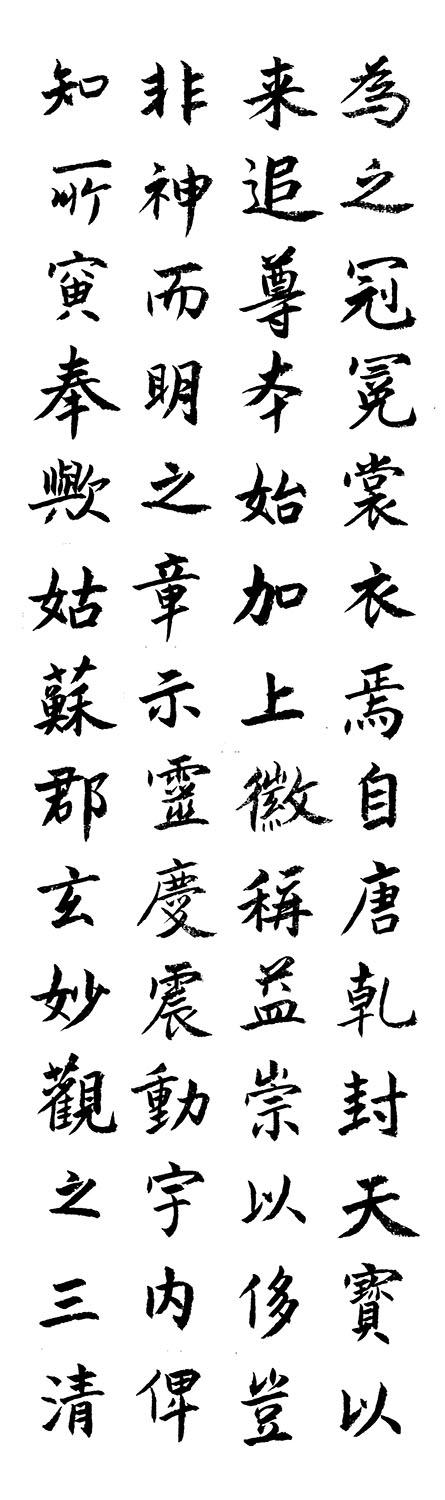 為之冠冕裳衣焉自唐乾封天寶以
来追尊本始加上徽稱益崇以侈豈
非神而明之章示靈慶震動宇内俾
知所寅奉歟姑蘇郡玄妙觀之三清